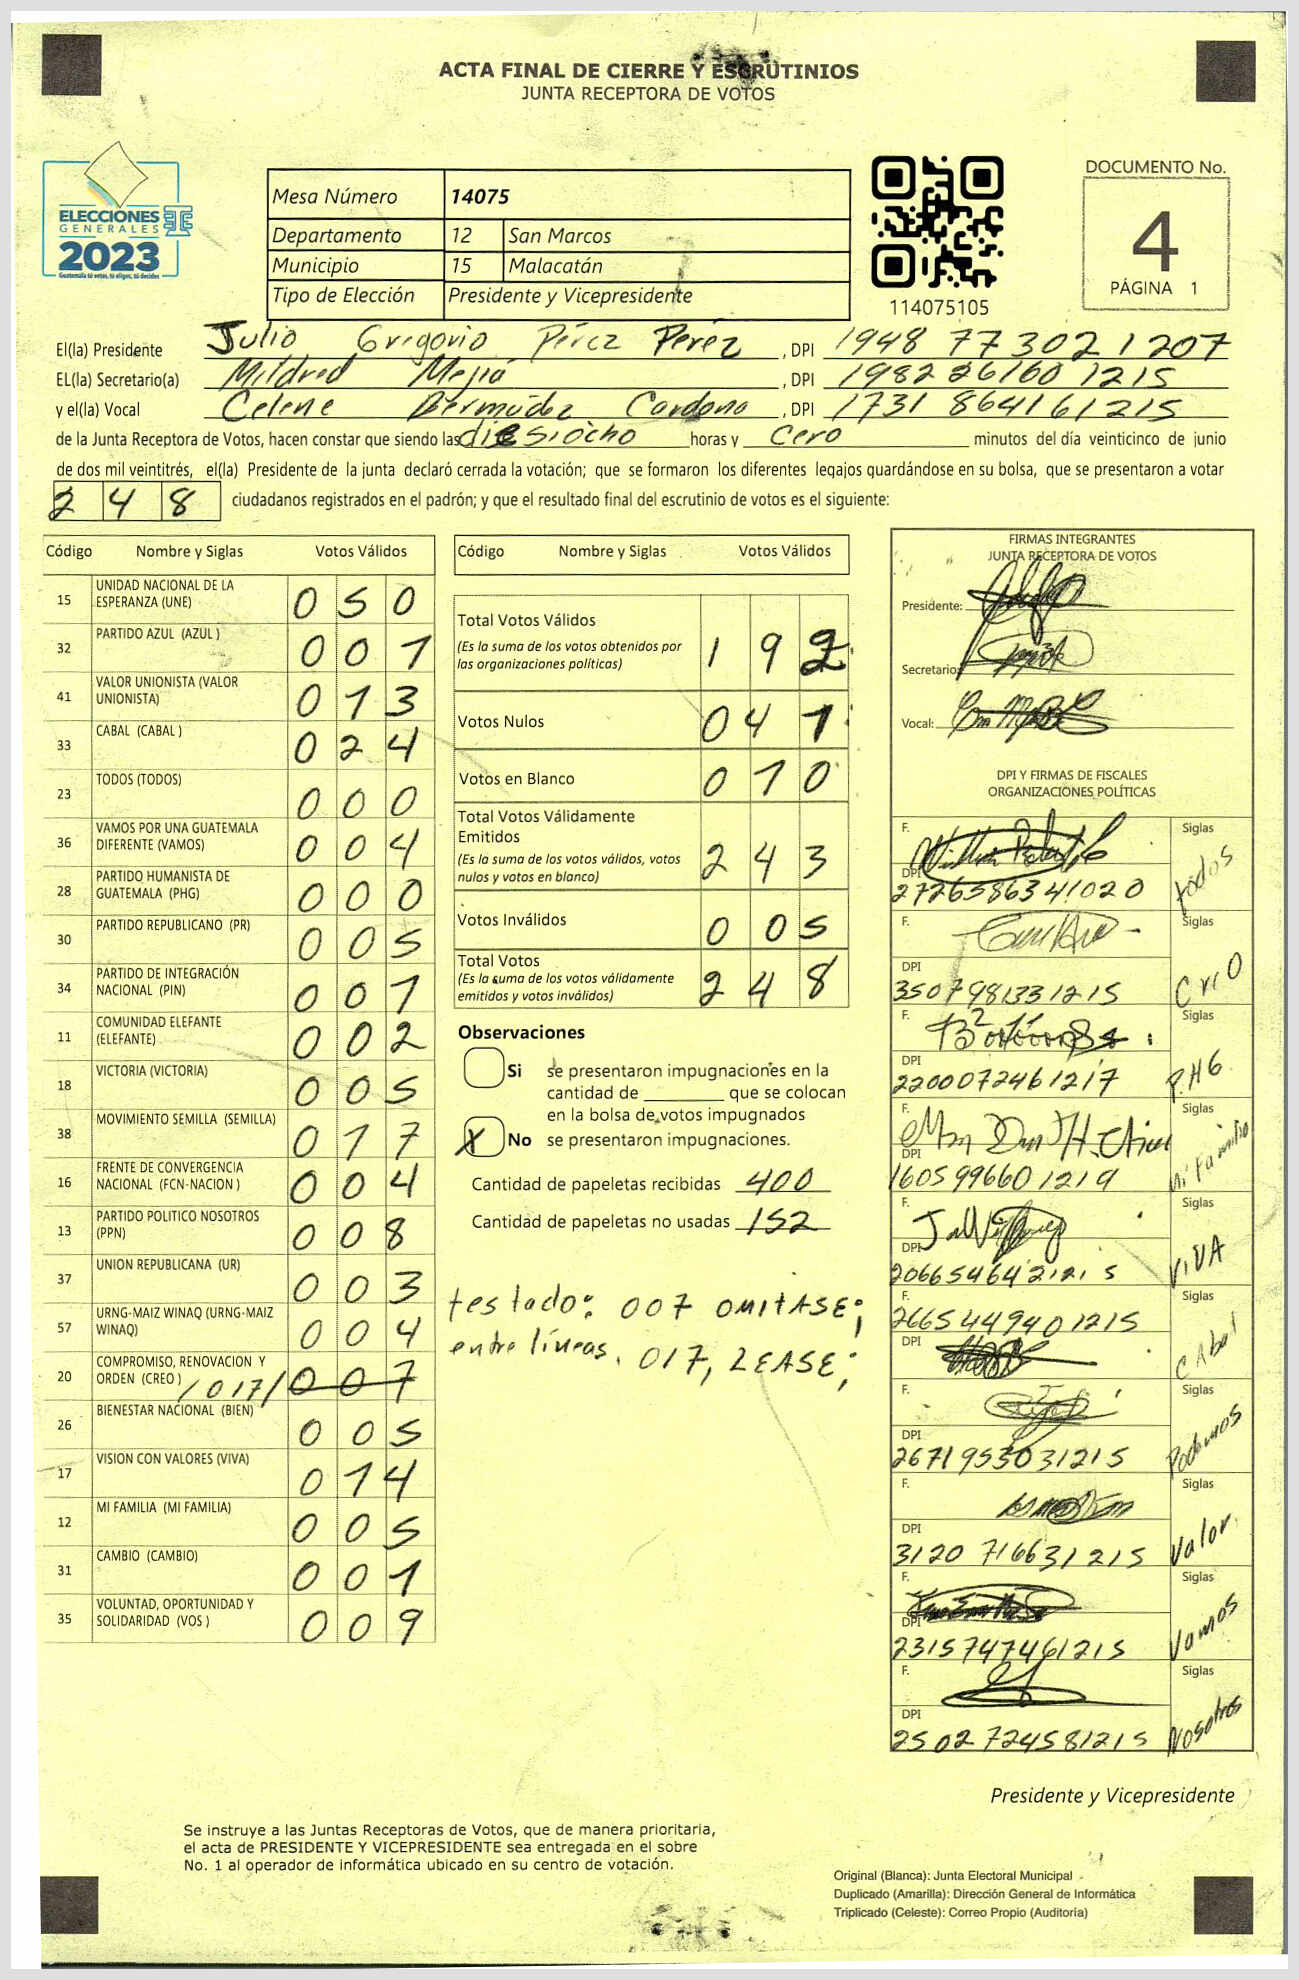 ACTA FINAL DE CIERRE Y ESCRUTINIOS
JUNTA RECEPTORA DE VOTOS
ELECCIONES
GENERALES
2023
Guatemala tú votas, tú eliges, tú decides
Mesa Número 14075
Departamento 12 San Marcos
Municipio 15 Malacatán
Tipo de Elección Presidente y Vicepresidente
114075105
DOCUMENTO No.
4
PÁGINA 1
El(la) Presidente Julio Grigorio Pérez Peréz , DPI 1948 77302 1207
EL(la) Secretario(a) Mildred Mejiá , DPI 1982 26160 1215
y el(la) Vocal Celene Bermúdez Cardona , DPI 1731 86416 1215
de la Junta Receptora de Votos, hacen constar que siendo las diesiocho horas y Cero minutos del día veinticinco de junio
de dos mil veintitrés, el(la) Presidente de la junta declaró cerrada la votación; que se formaron los diferentes legajos guardándose en su bolsa, que se presentaron a votar
248 ciudadanos registrados en el padrón; y que el resultado final del escrutinio de votos es el siguiente:
Código Nombre y Siglas Votos Válidos
15 UNIDAD NACIONAL DE LA ESPERANZA (UNE) 050
32 PARTIDO AZUL (AZUL ) 001
41 VALOR UNIONISTA (VALOR UNIONISTA) 013
33 CABAL (CABAL ) 024
23 TODOS (TODOS) 000
36 VAMOS POR UNA GUATEMALA DIFERENTE (VAMOS) 004
28 PARTIDO HUMANISTA DE GUATEMALA (PHG) 000
30 PARTIDO REPUBLICANO (PR) 005
34 PARTIDO DE INTEGRACIÓN NACIONAL (PIN) 001
11 COMUNIDAD ELEFANTE (ELEFANTE) 002
18 VICTORIA (VICTORIA) 005
38 MOVIMIENTO SEMILLA (SEMILLA) 017
16 FRENTE DE CONVERGENCIA NACIONAL (FCN-NACION ) 004
13 PARTIDO POLITICO NOSOTROS (PPN) 008
37 UNION REPUBLICANA (UR) 003
57 URNG-MAIZ WINAQ (URNG-MAIZ WINAQ) 004
20 COMPROMISO, RENOVACION Y ORDEN (CREO ) /017/ 007
26 BIENESTAR NACIONAL (BIEN) 005
17 VISION CON VALORES (VIVA) 014
12 MI FAMILIA (MI FAMILIA) 005
31 CAMBIO (CAMBIO) 001
35 VOLUNTAD, OPORTUNIDAD Y SOLIDARIDAD (VOS ) 009
Código Nombre y Siglas Votos Válidos
Total Votos Válidos 192
(Es la suma de los votos obtenidos por
las organizaciones políticas)
Votos Nulos 041
Votos en Blanco 010
Total Votos Válidamente
Emitidos 243
(Es la suma de los votos válidos, votos
nulos y votos en blanco)
Votos Inválidos 005
Total Votos 248
(Es la suma de los votos válidamente
emitidos y votos inválidos)
Observaciones
Si se presentaron impugnaciones en la
cantidad de ________ que se colocan
en la bolsa de votos impugnados
X No se presentaron impugnaciones.
Cantidad de papeletas recibidas 400
Cantidad de papeletas no usadas 152
testado: 007 OMITASE;
entre líneas. 017, LEASE;
FIRMAS INTEGRANTES
JUNTA RECEPTORA DE VOTOS
Presidente:
Secretario:
Vocal:
DPI Y FIRMAS DE FISCALES
ORGANIZACIONES POLÍTICAS
F. Siglas
DPI 2726586341020 todos
F. Siglas
DPI 3507981331215 CrEO
F. Siglas
DPI 2200072461217 P.H6.
F. Siglas
DPI 1605996601219 Mi Familia
F. Siglas
DPI 2066546421215 VIVA
F. Siglas
2665449401215 CAbal
DPI
F. Siglas
DPI 2671953031215 Podemos
F. Siglas
DPI 3120 716631215 Valor
F. Siglas
DPI 2315747461215 Vamos
F. Siglas
DPI 2502724581215 Nosotros
Presidente y Vicepresidente
Se instruye a las Juntas Receptoras de Votos, que de manera prioritaria,
el acta de PRESIDENTE Y VICEPRESIDENTE sea entregada en el sobre
No. 1 al operador de informática ubicado en su centro de votación.
Original (Blanca): Junta Electoral Municipal
Duplicado (Amarilla): Dirección General de Informática
Triplicado (Celeste): Correo Propio (Auditoría)